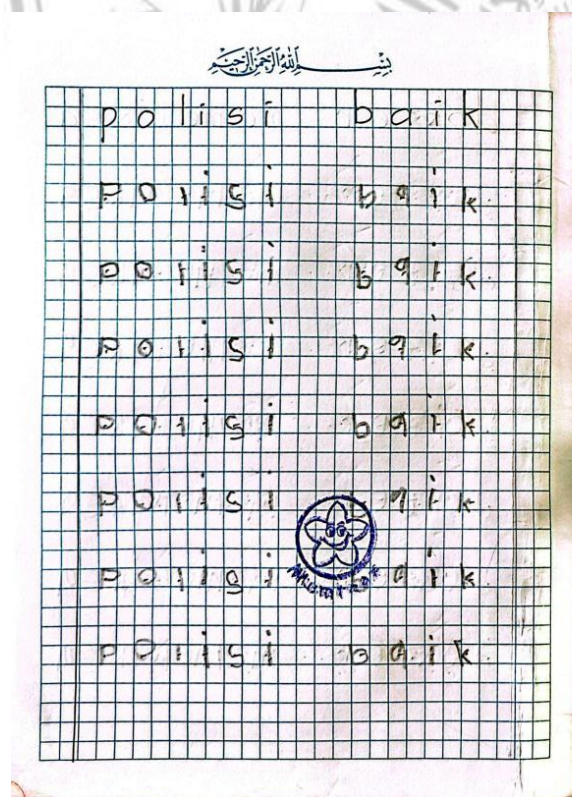 بِسْمِ اللَّهِ الرَّحْمَنِ الرَّحِيمِ
polisi baik
polisi baik
polisi baik
polisi baik
polisi baik
polisi baik
polisi baik
polisi baik